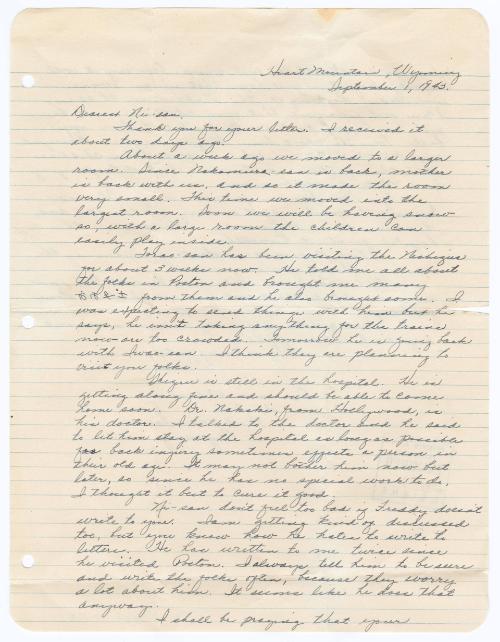 Heart Mountain, Wyoming
September 1, 1943.
Dearest Ni-san,
Thank you for your letter. I received it
about two days ago.
About a week ago we moved to a larger
room. Since Nakamura-san is back, mother
is back with us, and so it made the room
very small. This time we moved into the
largest room. Soon we will be having snow
so, with a large room the children can
easily play inside.
-san has been visiting the
for about 3 weeks now. He told me all about
the folks in Poston and brought me many
from them and he also brought some. I
was expecting to send things with him but he
says, he isn't taking anything for the trains
now are too crowded. Tomorrow he is going back
with Iwao-san. I think they are planning to
visit you folks.
is still in the hospital. He is
getting along fine and should be able to come
home soon. Dr. Nakaki, from Hollywood, is
his doctor. I talked to the doctor and he said
to let him stay at the hospital as long as possible
for back injury sometimes effects a person in
their old age. It may not bother him now but
later, so since he has no special work to do,
I thought it best to cure it good.
Ni-san don't feel too bad if Freddy doesn't
write to you. I am getting kind of discussed
too, but you know how he hates to write to
letters. He has written to me twice since
he visited Poston. I always tell him to be sure
and write the folks often, because they worry
a lot about him. It seems like he does that
anyway.
I shall be praying that your